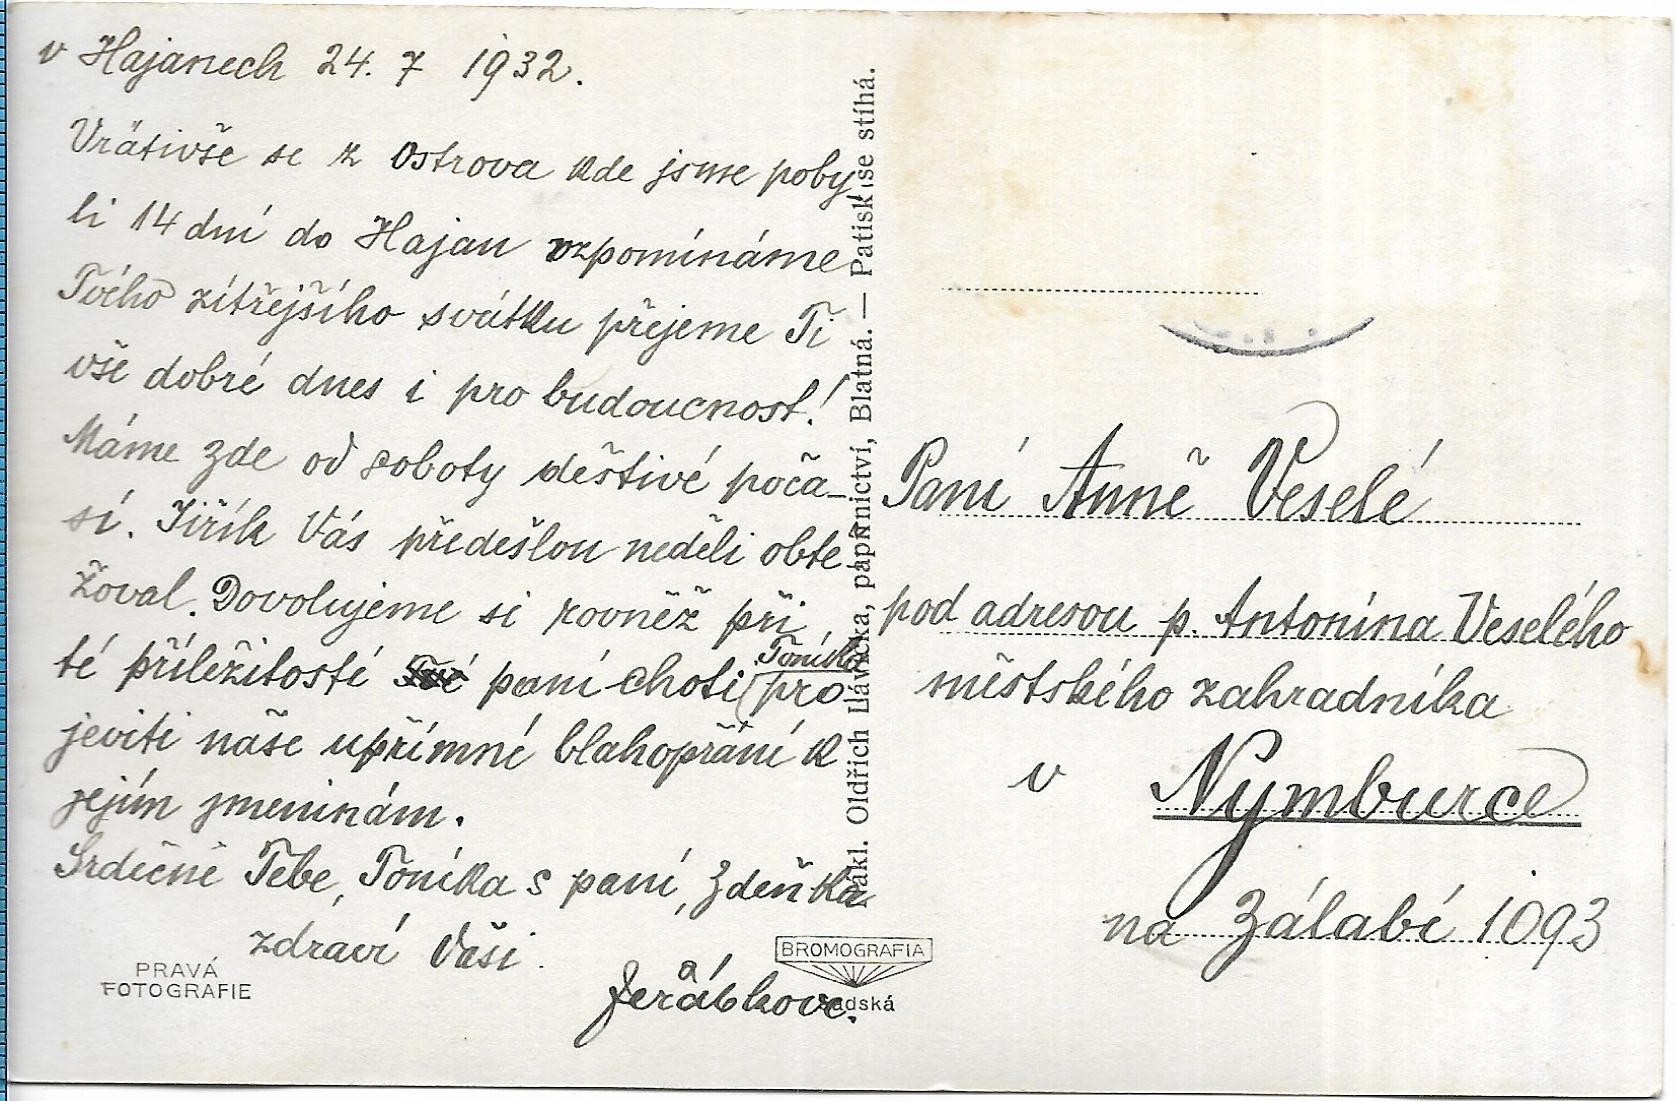 v Hajanech 24. 7 1932.
Vrátivše se z Ostrova kde jsme poby
li 14 dní do Hajan vzpomínáme
Tvého zítřejšího svátku přejeme Ti
vše dobré dnes i pro budoucnost!
Máme zde od soboty deštivé poča-
sí. Jiřík Vás předešlou neděli obtě
žoval. Dovolujeme si rovněž při
té příležitosti paní choti (Toníka
pro
jeviti naše upřímné blahopřání k
jejím jmeninám.
Srdečně Tebe, Toníka s paní, Zdeňka
zdraví Vaši
Jeřábkovi.
a
PRAVÁ
FOTOGRAFIE
BROMOGRAFIA
Sadská
Nákl. Oldřich Hlavička, papírnictví, Blatná. — Patisk se stíhá.
Paní Anně Veselé
pod adresou p. Antonína Veselého
městského zahradníka
v Nymburce
na Zálabí 1093